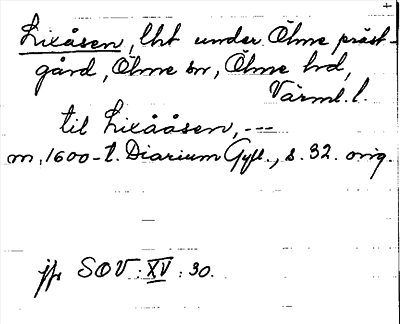 Lixåsen, lht under Ölme präst-
gård, Ölme sn, Ölme hd,
Värml. l.
til Lixååsen, ---
m. 1600-t. Diarium Gyll., s. 32. orig.
jfr SOV: XV: 30.